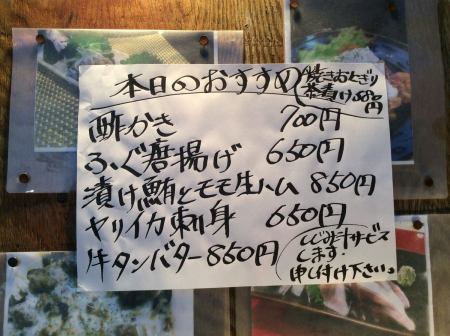 本日のおすすめ
焼きおにぎり
茶漬け680円
酢かき 700円
ふぐ唐揚げ 650円
漬け鮪とモモ生ハム 850円
ヤリイカ刺身 650円
牛タンバター 850円
しじみ汁サービス
します。
申し付け下さい。